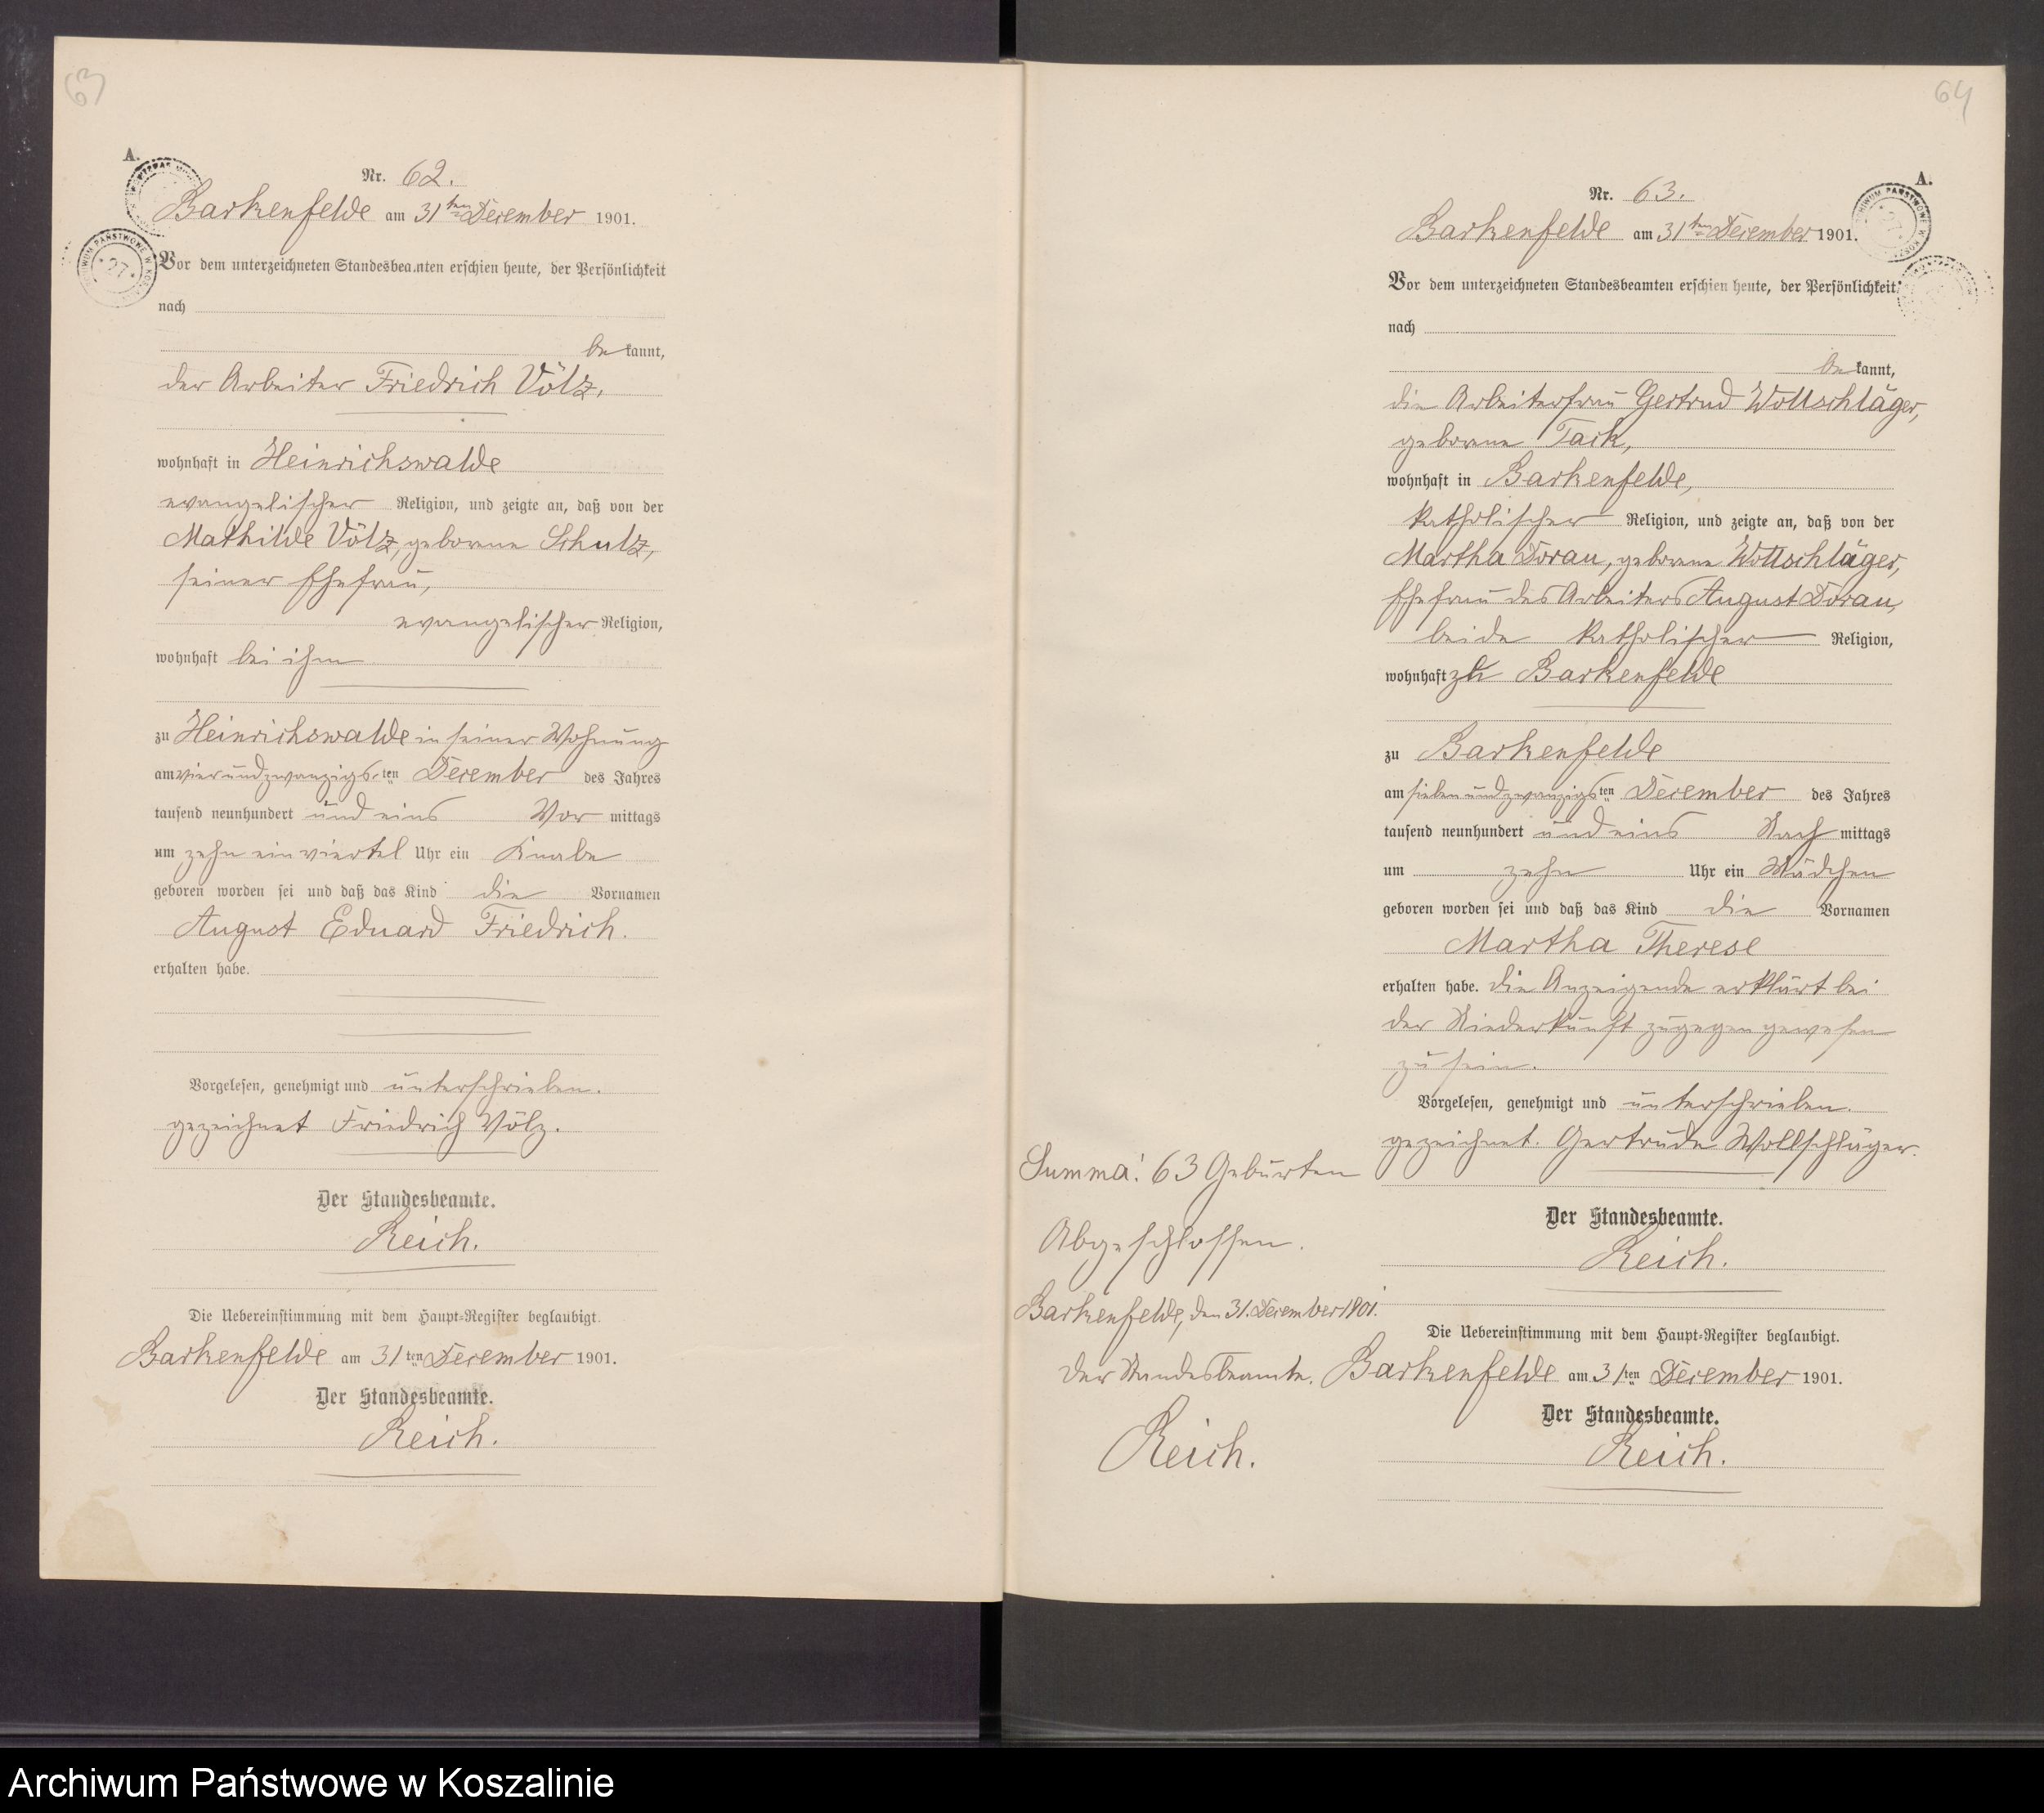 63
A.
Nr. 62.
Barkenfelde am 31ten December 1901.
Vor dem unterzeichneten Standesbeamten erschien heute, der Persönlichkeit
nach
bekannt,
der Arbeiter Friedrich Völz,
wohnhaft in Heinrichswalde
evangelischer Religion, und zeigte an, daß von der
Mathilde Völz, geborene Schulz,
seiner Ehefrau,
evangelischer Religion,
wohnhaft bei ihm
zu Heinrichswalde in seiner Wohnung
am vierundzwanzigsten December des Jahres
tausend neunhundert und eins Vormittags
um zehn einviertel Uhr ein Knabe
geboren worden sei und daß das Kind die Vornamen
August Eduard Friedrich.
erhalten habe.
Vorgelesen, genehmigt und unterschrieben.
gezeichnet Friedrich Völz.
Der Standesbeamte.
Reich.
Die Uebereinstimmung mit dem Haupt-Register beglaubigt.
Barkenfelde am 31ten December 1901.
Der Standesbeamte.
Reich.
64
A.
Nr. 63.
Barkenfelde am 31ten December 1901.
Vor dem unterzeichneten Standesbeamten erschien heute, der Persönlichkeit
nach
bekannt,
die Arbeiterfrau Gertrud Wollschläger,
geborene Tack,
wohnhaft in Barkenfelde,
katholischer Religion, und zeigte an, daß von der
Martha Dorau, geborene Wollschläger,
Ehefrau des Arbeiters August Dorau,
beide katholischer Religion,
wohnhaft zu Barkenfelde
zu Barkenfelde
am siebenundzwanzigsten December des Jahres
tausend neunhundert und eins Nachmittags
um zehn Uhr ein Mädchen
geboren worden sei und daß das Kind die Vornamen
Martha Therese
erhalten habe. Die Anzeigende erklärt bei
der Niederkunft zugegen gewesen
zu sein.
Vorgelesen, genehmigt und unterschrieben.
gezeichnet. Gertrude Wollschläger.
Der Standesbeamte.
Reich.
Die Uebereinstimmung mit dem Haupt-Register beglaubigt.
Barkenfelde am 31ten December 1901.
Der Standesbeamte.
Reich.
Summa: 63 Geburten
Abgeschlossen.
Barkenfelde, den 31. December 1901.
Der Standesbeamte.
Reich.
Archiwum Państwowe w Koszalinie